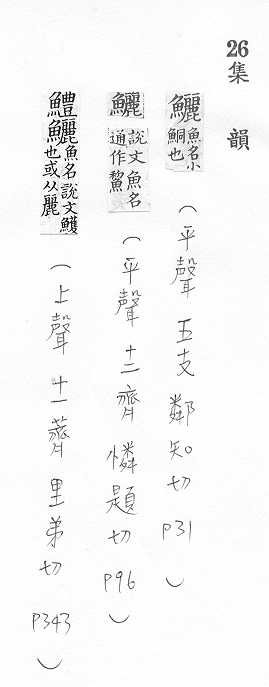 26 集韻
鱺 魚名小鮦也（平聲 五支 鄰知切 P31）
鱺 說文魚名通作鯬（平聲 十二齊 憐題切 P96）
鱧鱺 魚名說文鱯也或从麗（上聲 十一薺 里弟切 P343）